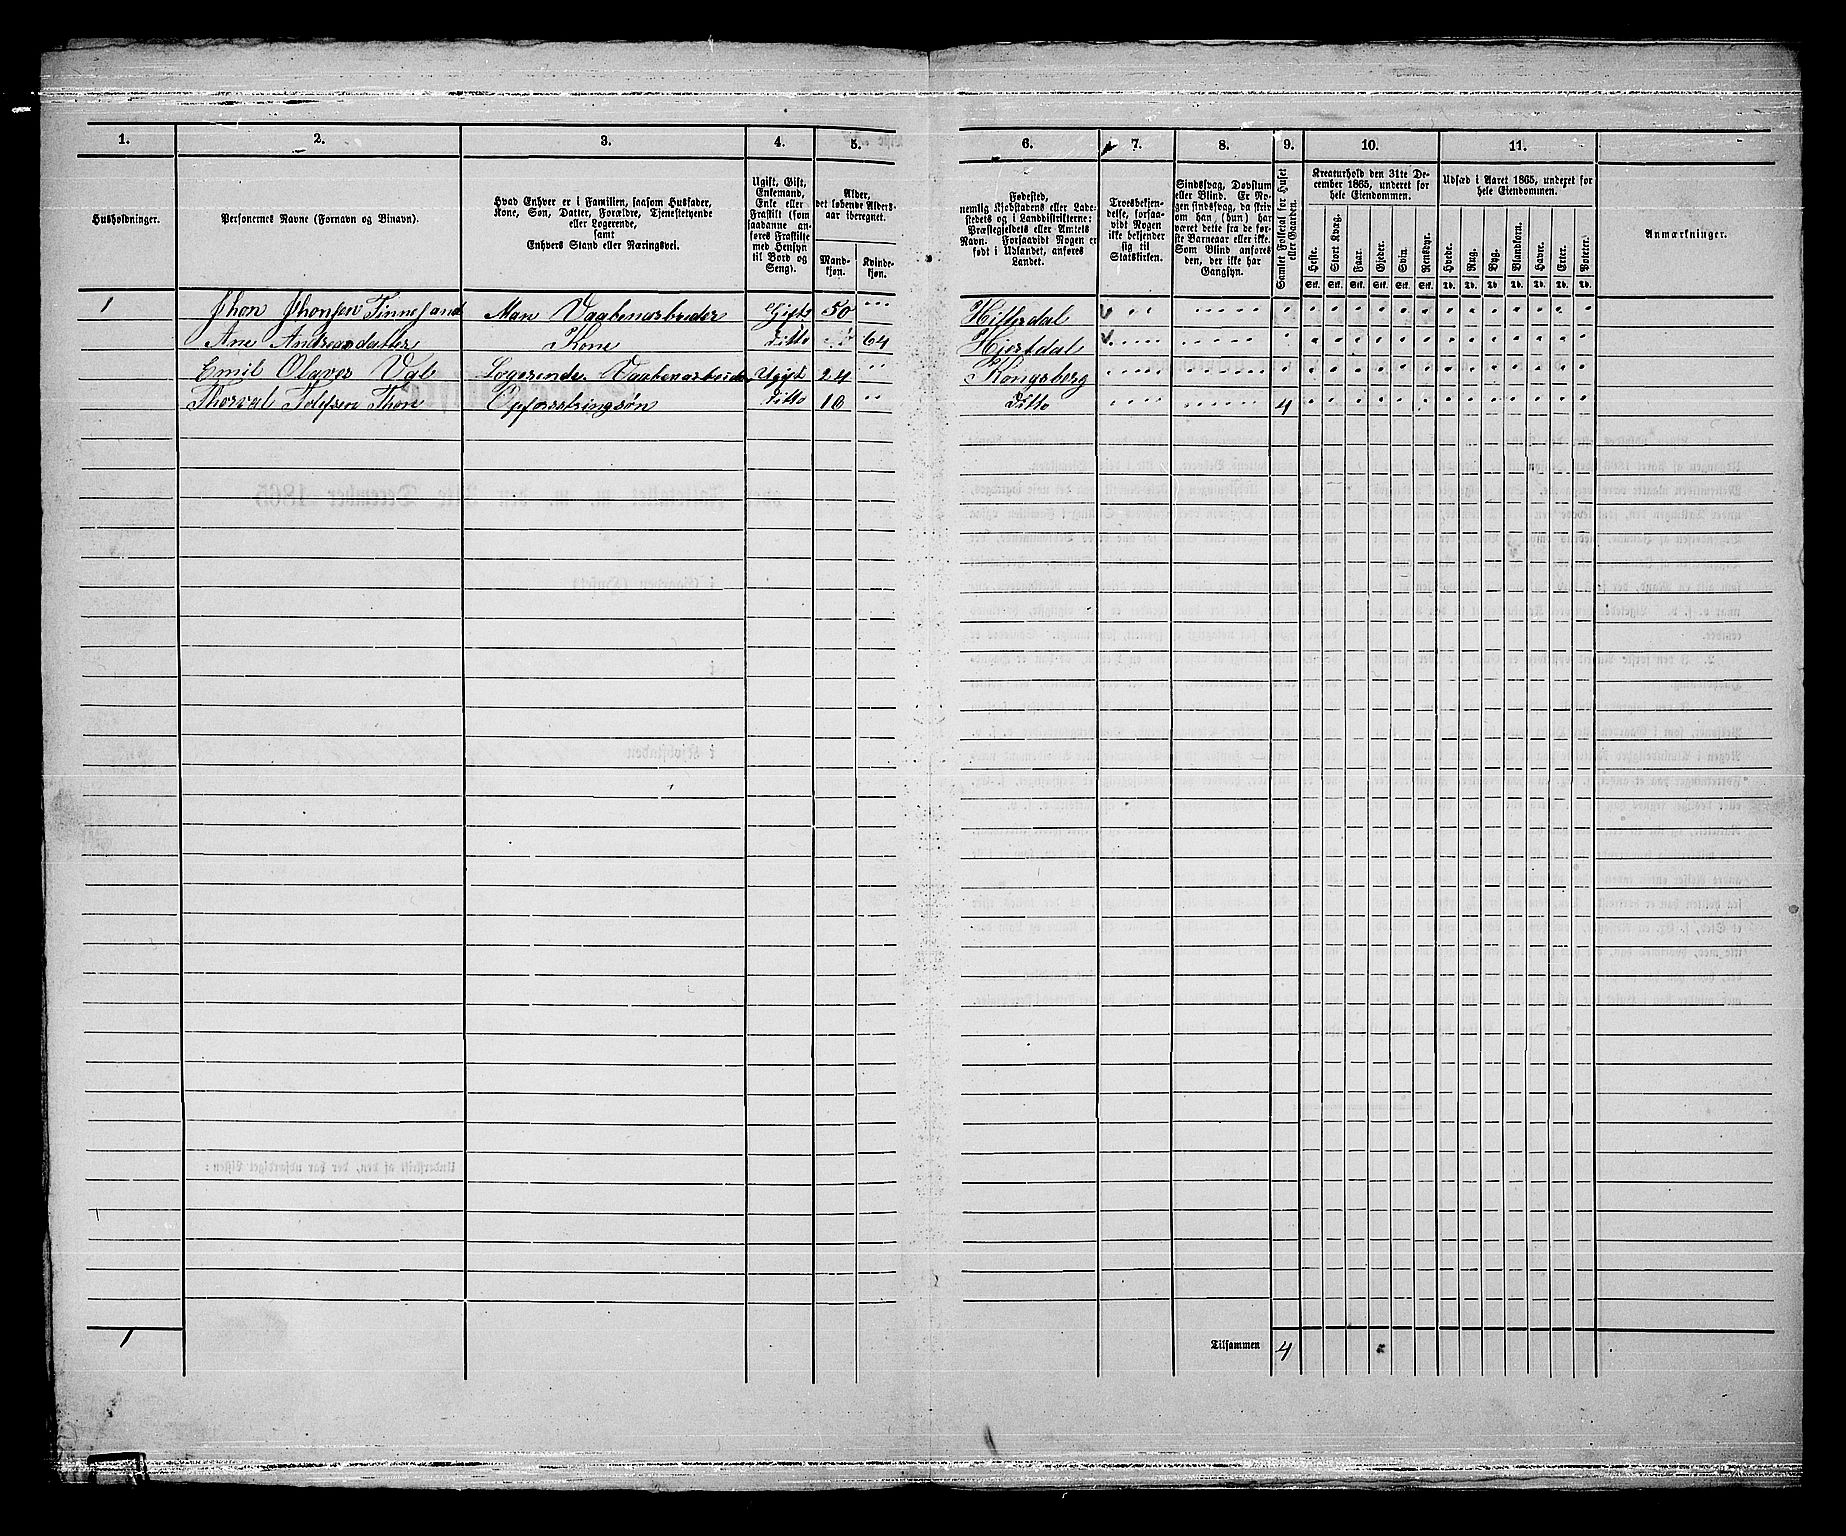 1. 2. 3. 4. 5. 6. 7. 8. 9. 10. 11.
Husholdninger.
Personernes Navne (Fornavn og Binavn).
Hvad Enhver er i Familien, saasom Husfader,
Kone, Søn, Datter, Forældre, Tjenestetyende
eller Logerende,
samt
Enhvers Stand eller Næringsvei.
Ugift, Gift,
Enkemand,
Enke eller
Fraskilt (som
saadanne an-
føres Fraskilte
med Hensyn
til Bord og
Seng).
Alder,
det løbende Alders-
aar iberegnet.
Mand-
kjøn.
Kvinde-
kjøn.
Fødested,
nemlig Kjøbstadens eller Lade-
stedets og i Landdistrikterne:
Præstegjeldets eller Amtets
Navn. Forsaavidt Nogen er
født i Udlandet, anføres
Landet.
Troesbekjen-
delse, forsaa-
vidt Nogen
ikke bekjender
sig til
Statskirken.
Sindssvag, Døvstum
eller Blind. Er No-
gen sindssvag, da skriv
om han (hun) har
været dette fra de før-
ste Barneaar eller ikke.
Som Blind anføres
den, der ikke har
Gangsyn.
Samlet Folketal for Huset
eller Gaarden.
Kreaturhold den 31te De-
cember 1865, underet for
hele Eiendommen.
Heste. Stort Kvæg. Faar. Gjeder. Svin. Rensdyr.
Stk. Stk. Stk. Stk. Stk. Stk.
Udsæd i Aaret 1865, underet for
hele Eiendommen.
Hvede. Rug. Byg. Blandkorn. Havre. Erter. Poteter.
Td. Td. Td. Td. Td. Td. Td.
Anmærkninger.
1 Jhon Jhonsen Tinnesand Man Vaabenarbeider Gift 50 Hitterdal
Ane Andreasdatter Kone Ditto 64 Hjertdal
Emil Olaves Logerende Vaabenarbeider Ugift 24 Kongsberg
Thorval Tolefsen Thon Opfostringsøn Ditto 10 Ditto 4
1 Tilsammen 4